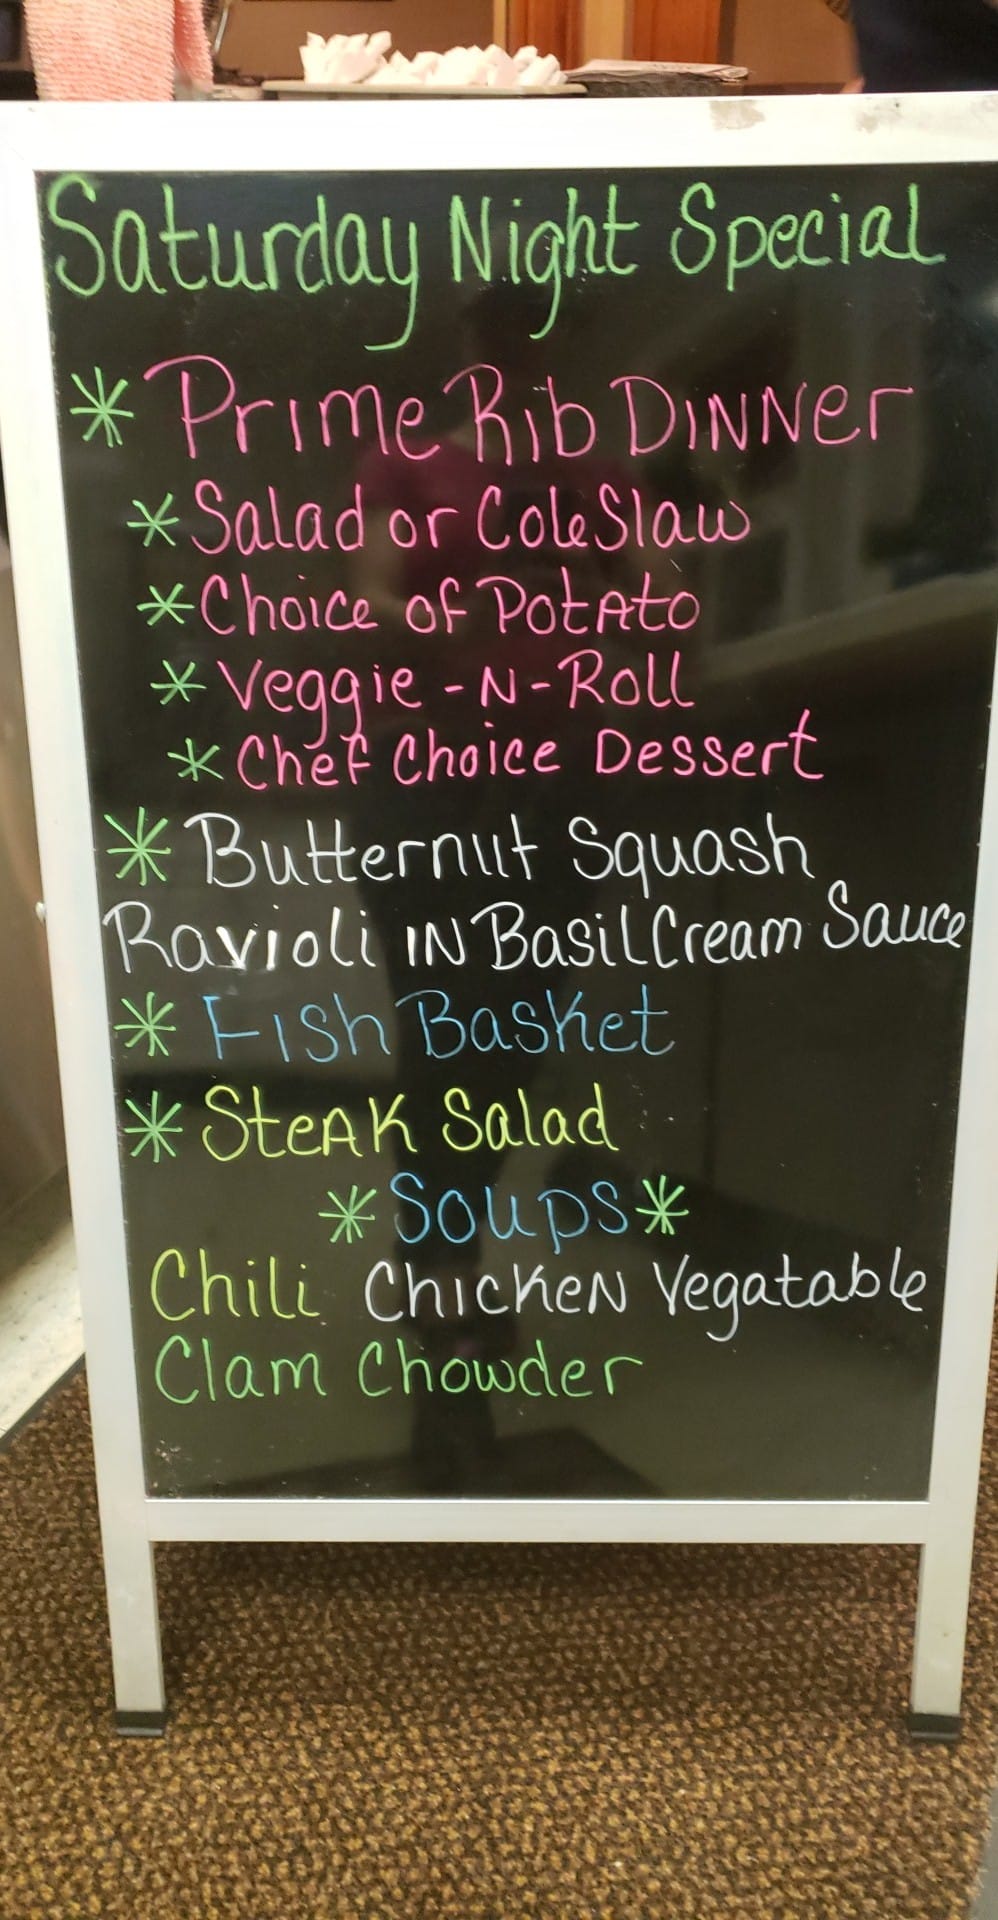 Saturday Night Special
* Prime Rib DINNer
* Salad or ColeSlaw
* Choice of PotAto
* Veggie-N-Roll
* Chef Choice Dessert
* Butternut Squash
Ravioli IN Basil Cream Sauce
* Fish Basket
* SteAK Salad
* Soups *
Chili Chicken Vegatable
Clam Chowder